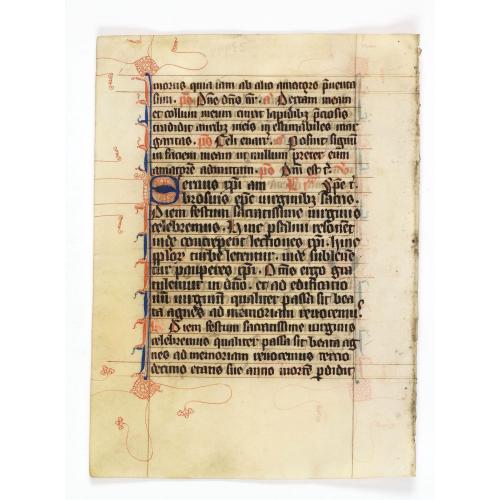 moris quia iam ab alio amatore pventa
sum. ps Dne dns nr. a Dextam meam
et collum meum cinxit lapidibz pciosis
tradidit auribz meis inestimabiles mar
garitas. ps Celi enarr. a Posuit signū
in faciem meam ut nullum preter eum
amatorē admittam. ps Dni est t.
Servus xpi am
brosius epc virginibz sacris
Diem festum sacratissime virginis
celebremus. Hinc psalmi resonent
inde concrepent lectiones. Hinc
pploz turbe letentur. inde subleuen
tur pauperes xpi. Oms ergo gra
tulemur in dno. et ad edificatio
nem virginū qualiter passa sit bea
ta agnes ad memoriam reuocemus.
Diem festum sacratissime virginis
celebremus qualiter passa sit beata ag
nes ad memoriam reuocemus tercio
decimo etatis sue anno mortē pdidit